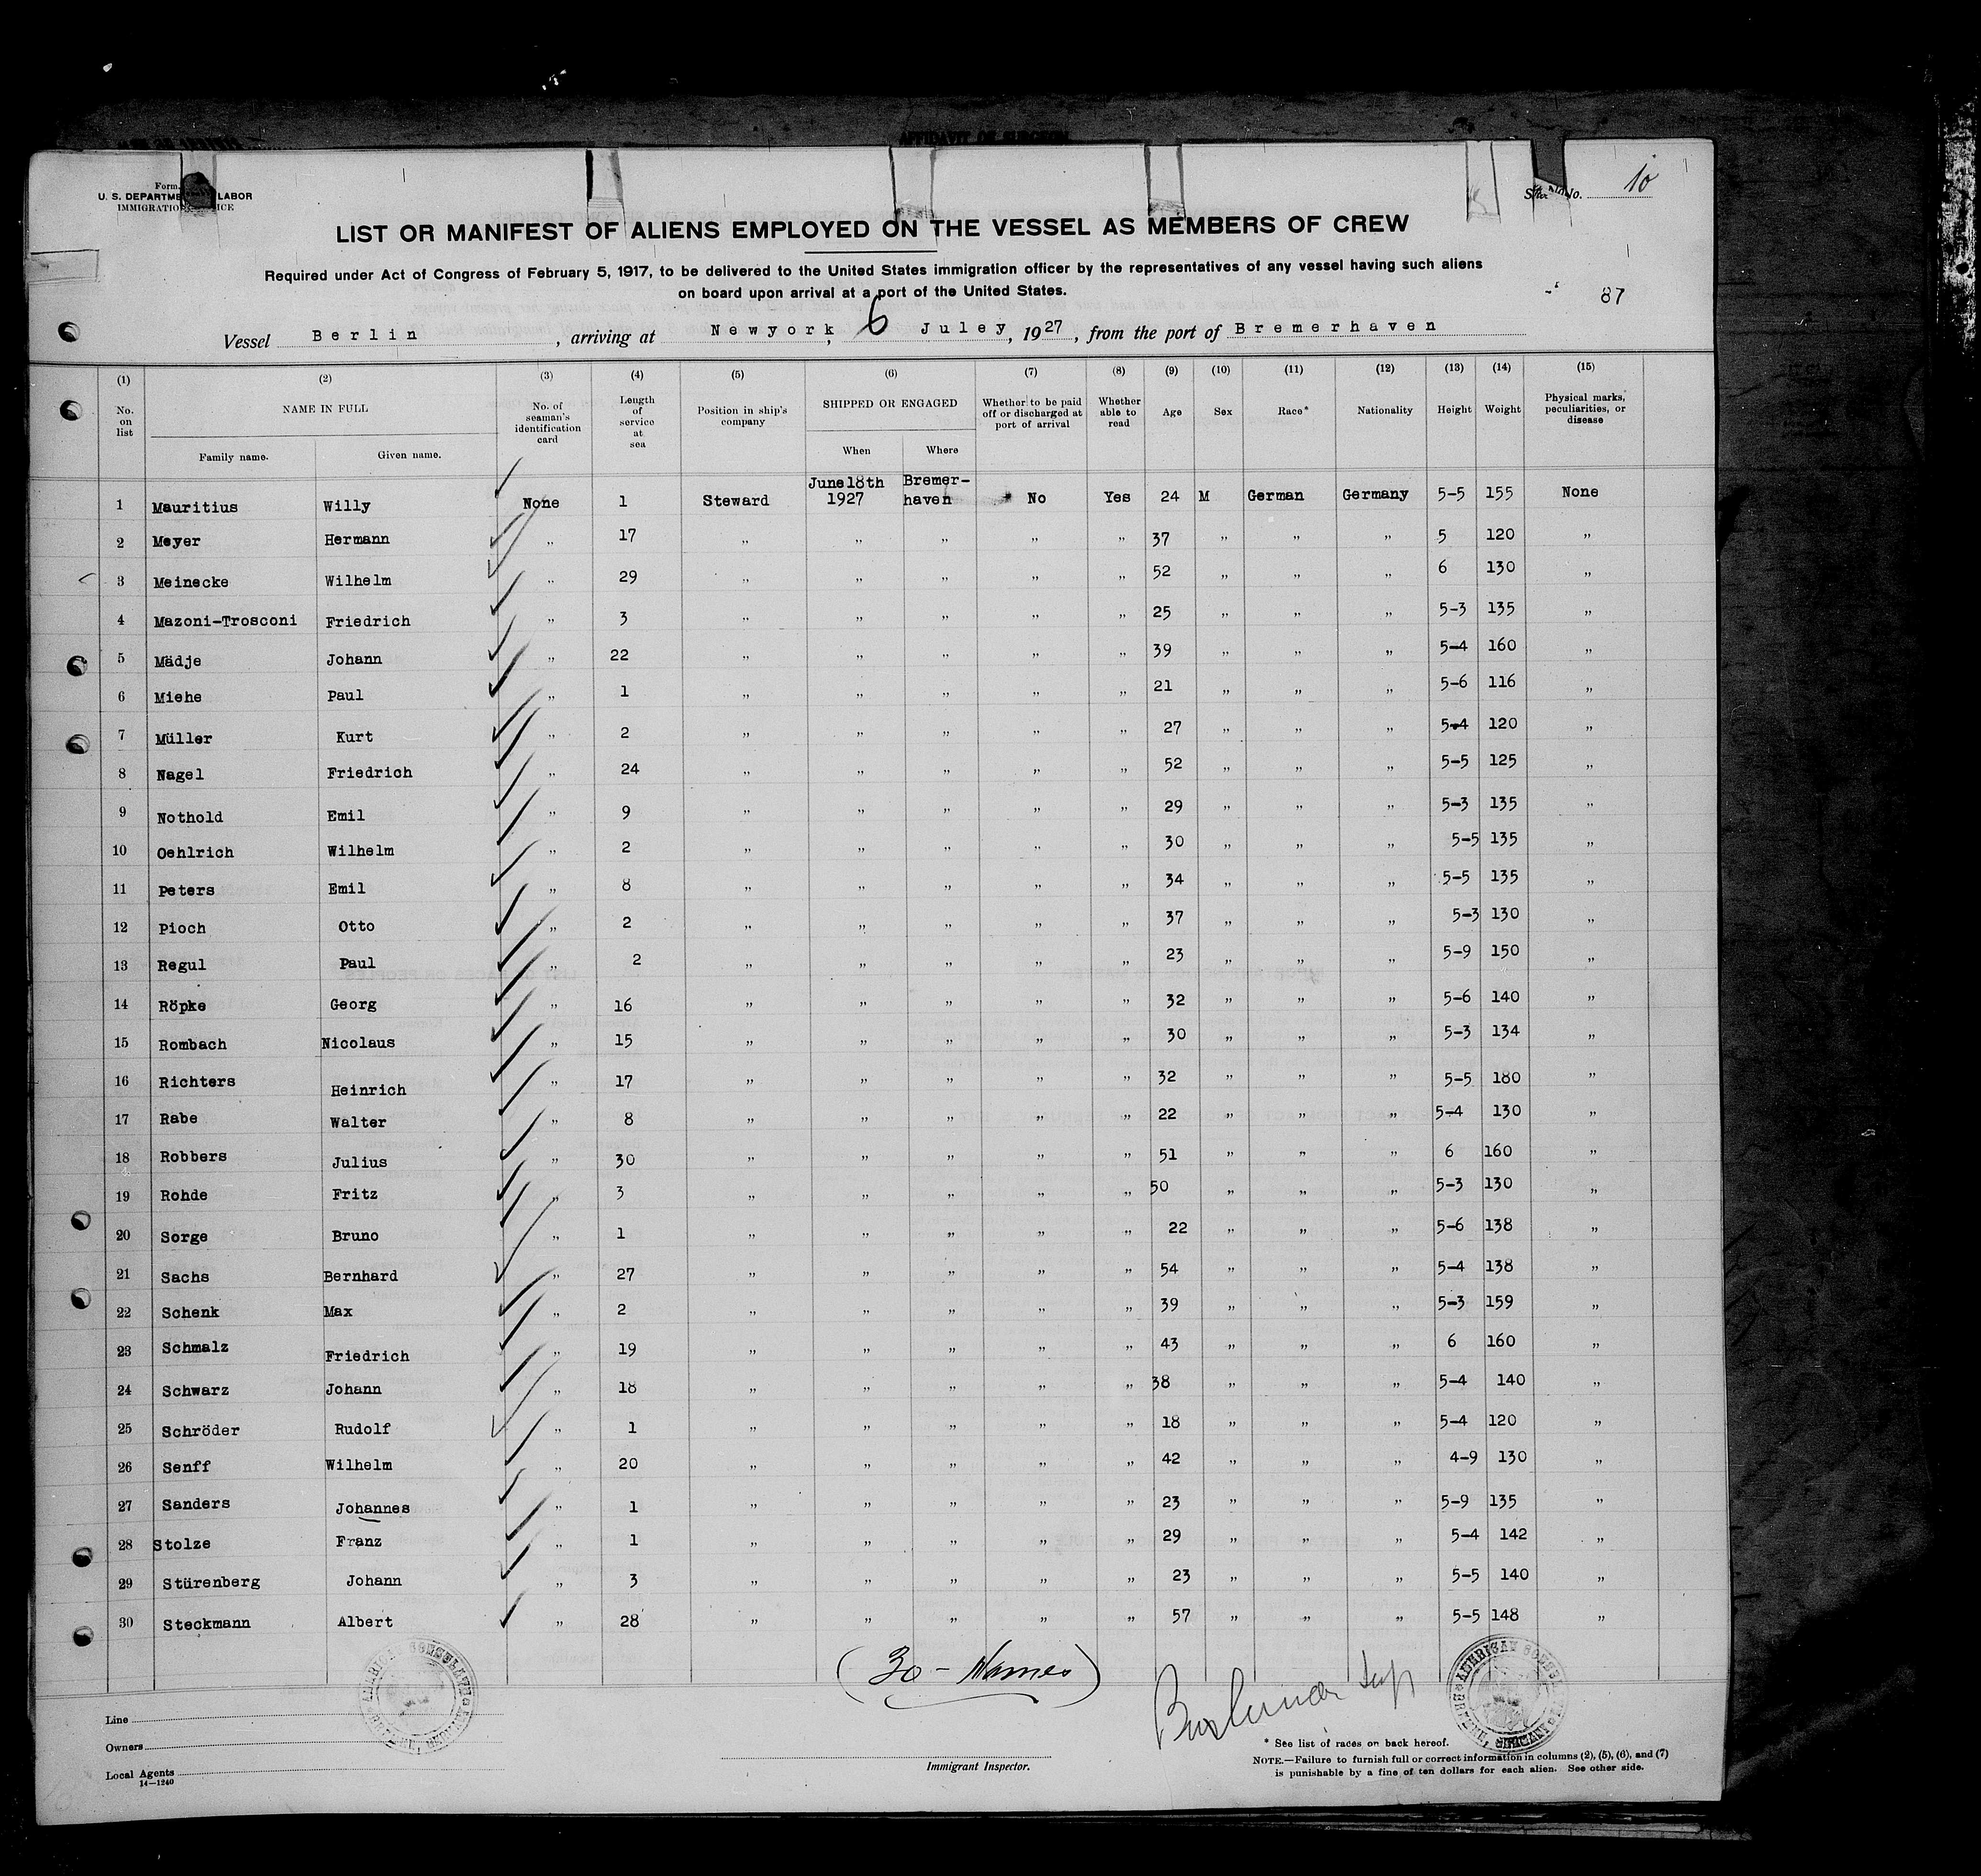 AFFIDAVIT OF SURGEON
Form
U. S. DEPARTME LABOR
IMMIGRATIO ICE
No. 10
LIST OR MANIFEST OF ALIENS EMPLOYED ON THE VESSEL AS MEMBERS OF CREW
Required under Act of Congress of February 5, 1917, to be delivered to the United States immigration officer by the representatives of any vessel having such aliens
on board upon arrival at a port of the United States.
87
Vessel Berlin, arriving at Newyork, 6 Juley, 1927, from the port of Bremerhaven
(1) (2) (3) (4) (5) (6) (7) (8) (9) (10) (11) (12) (13) (14) (15)
No. on list NAME IN FULL No. of seaman's identification card Length of service at sea Position in ship's company SHIPPED OR ENGAGED Whether to be paid off or discharged at port of arrival Whether able to read Age Sex Race* Nationality Height Weight Physical marks, peculiarities, or disease
Family name. Given name. When Where
1 Mauritius Willy None 1 Steward June18th 1927 Bremer-haven No Yes 24 M German Germany 5-5 155 None
2 Meyer Hermann " 17 " " " " " 37 " " " 5 120 "
3 Meinecke Wilhelm " 29 " " " " " 52 " " " 6 130 "
4 Mazoni-Trosconi Friedrich " 3 " " " " " 25 " " " 5-3 135 "
5 Mädje Johann " 22 " " " " " 39 " " " 5-4 160 "
6 Miehe Paul " 1 " " " " " 21 " " " 5-6 116 "
7 Müller Kurt " 2 " " " " " 27 " " " 5-4 120 "
8 Nagel Friedrich " 24 " " " " " 52 " " " 5-5 125 "
9 Nothold Emil " 9 " " " " " 29 " " " 5-3 135 "
10 Oehlrich Wilhelm " 2 " " " " " 30 " " " 5-5 135 "
11 Peters Emil " 8 " " " " " 34 " " " 5-5 135 "
12 Pioch Otto " 2 " " " " " 37 " " " 5-3 130 "
13 Regul Paul " 2 " " " " " 23 " " " 5-9 150 "
14 Röpke Georg " 16 " " " " " 32 " " " 5-6 140 "
15 Rombach Nicolaus " 15 " " " " " 30 " " " 5-3 134 "
16 Richters Heinrich " 17 " " " " " 32 " " " 5-5 180 "
17 Rabe Walter " 8 " " " " " 22 " " " 5-4 130 "
18 Robbers Julius " 30 " " " " " 51 " " " 6 160 "
19 Rohde Fritz " 3 " " " " " 50 " " " 5-3 130 "
20 Sorge Bruno " 1 " " " " " 22 " " " 5-6 138 "
21 Sachs Bernhard " 27 " " " " " 54 " " " 5-4 138 "
22 Schenk Max " 2 " " " " " 39 " " " 5-3 159 "
23 Schmalz Friedrich " 19 " " " " " 43 " " " 6 160 "
24 Schwarz Johann " 18 " " " " " 38 " " " 5-4 140 "
25 Schröder Rudolf " 1 " " " " " 18 " " " 5-4 120 "
26 Senff Wilhelm " 20 " " " " " 42 " " " 4-9 130 "
27 Sanders Johannes " 1 " " " " " 23 " " " 5-9 135 "
28 Stolze Franz " 1 " " " " " 29 " " " 5-4 142 "
29 Stürenberg Johann " 3 " " " " " 23 " " " 5-5 140 "
30 Steckmann Albert " 28 " " " " " 57 " " " 5-5 148 "
(30 - Names)
Line
Owners
Local Agents
14—1240
Immigrant Inspector.
* See list of races on back hereof.
NOTE.—Failure to furnish full or correct information in columns (2), (5), (6), and (7)
is punishable by a fine of ten dollars for each alien. See other side.